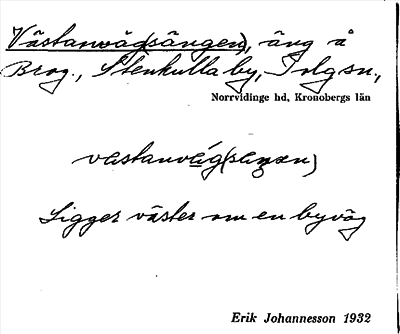 Västanväg(sängen), äng å
Brog., Stenkulla by, Tolg sn.,
Norrvidinge hd, Kronobergs län
västanvǽg(sæŋæn)
Ligger väster om en byväg
Erik Johannesson 1932